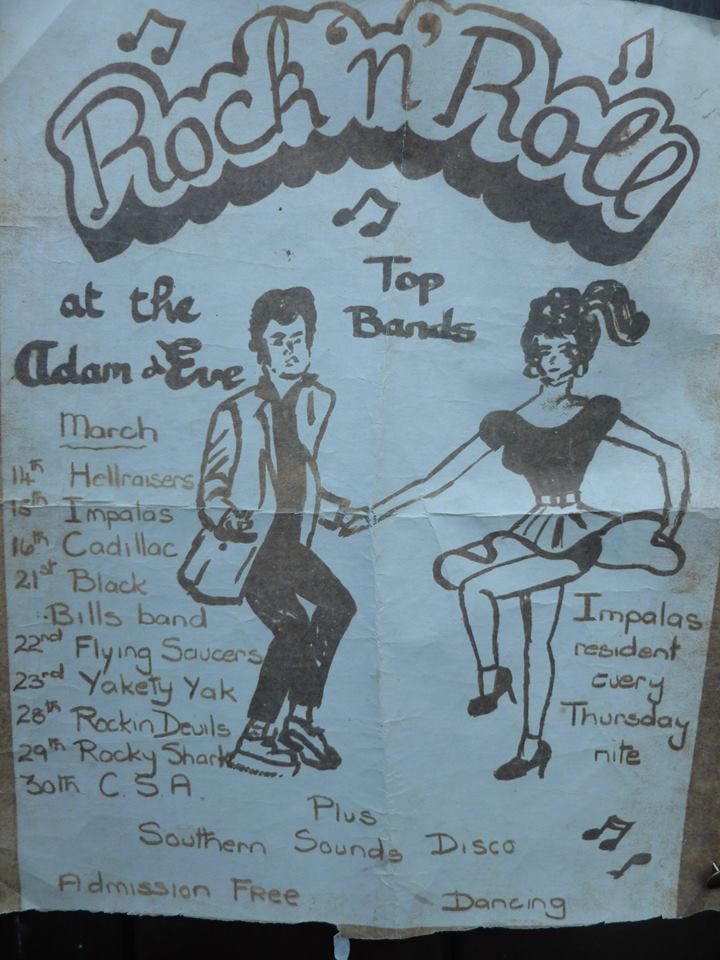 Rock 'n' Roll
at the
Adam & Eve
Top
Bands
March
14th Hellraisers
15th Impalas
16th Cadillac
21st Black
Bills band
22nd Flying Saucers
23rd Yakety Yak
28th Rockin Devils
29th Rocky Shark
30th C.S.A.
Impalas
resident
every
Thursday
nite
Plus
Southern Sounds Disco
Admission Free
Dancing